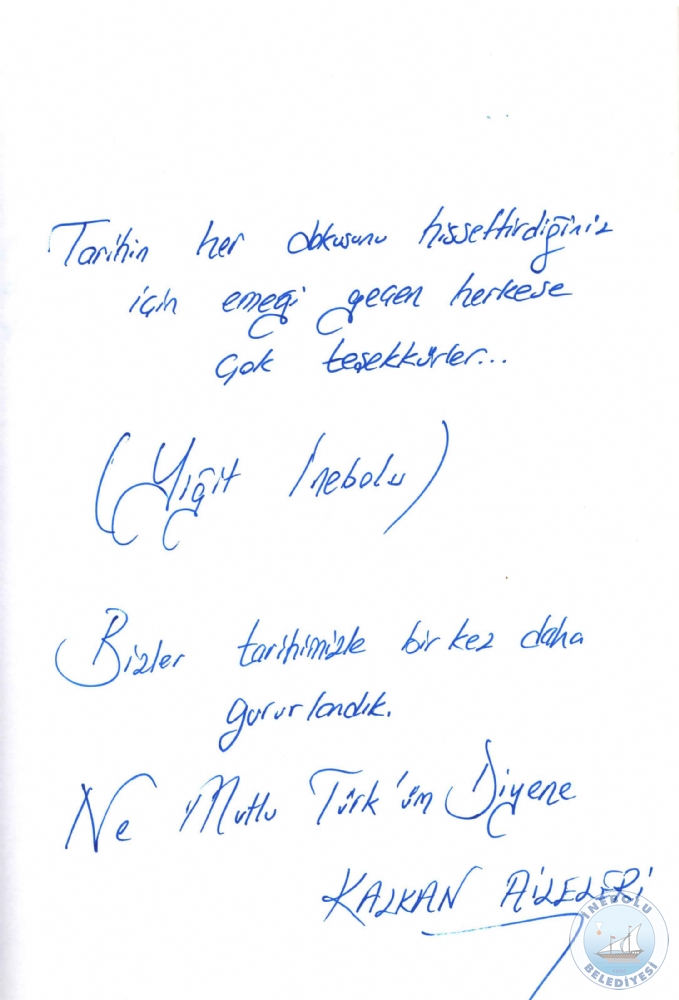 Tarihin her dokusunu hissettirdiğiniz
için emeği geçen herkese
çok teşekkürler...
(Yiğit İnebolu)
Bizler tarihimizle bir kez daha
gururlandık.
Ne Mutlu Türk'üm Diyene
KALKAN AİLELERİ
İNEBOLU
BELEDİYESİ